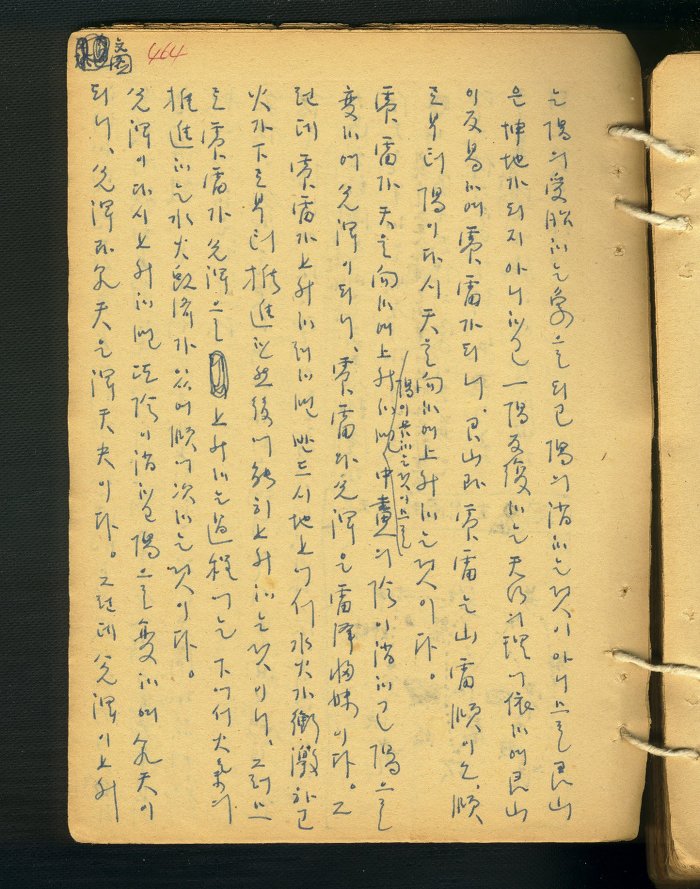 464
는 陽의 受胎하는 象으로 되고 陽의 消하는 것이 아니므로 艮山
은 坤地가 되지 아니하고 一陽反復하는 天行의 理에 依하여 艮山
이 反易하여 震雷가 되니, 艮山과 震雷는 山雷頤이오, 頤
로부터 陽이 다시 天을 向하여 上升하는 것이다。
震雷가 天을 向하여 上升하면 中畫의 陰이 消하고 陽으로
陽이 長하는 것이므로
變하여 兌澤이 되니, 震雷와 兌澤은 雷澤歸妹이다。그
런데 震雷가 上升하려하면 반드시 地上에서 水火가 衝激하고
火가 下로부터 推進한 然後에 能히 上升하는 것이니, 그러므
로 震雷가 兌澤으로 上升하는 過程에는 下에서 火氣가
推進하는 水火旣濟가 있어 頤에 次하는 것이다。
兌澤이 다시 上升하면 陰이 消하고 陽으로 變하여 乾天이
되니, 兌澤과 乾天은 澤天夬이다。그런데 兌澤이 上升